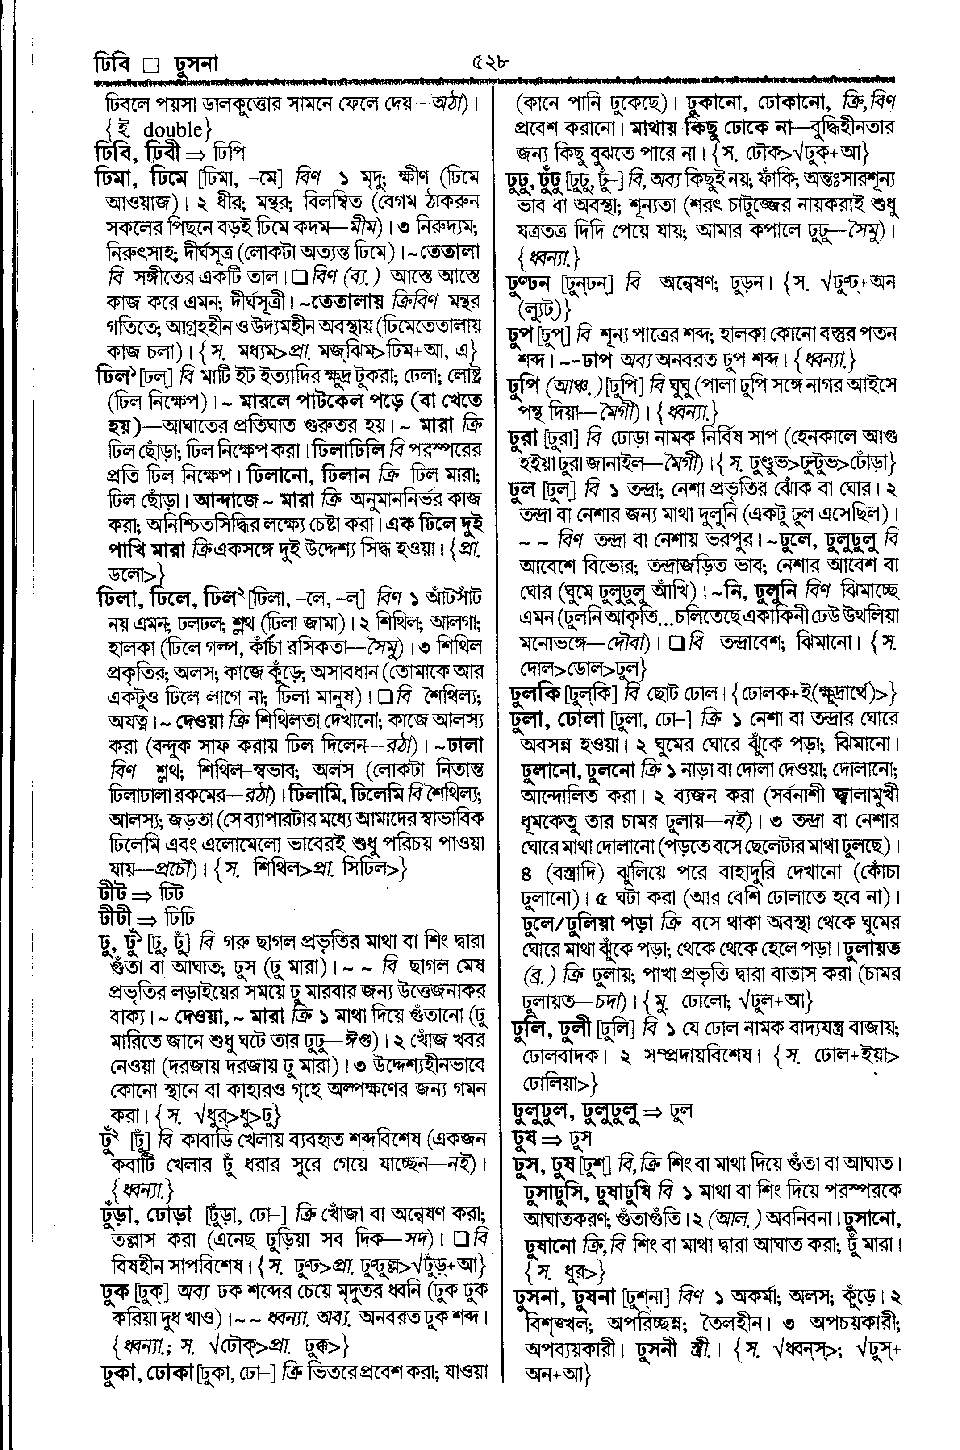 ঢিবি □ ঢুসনা
৫২৮
ঢিবলে পয়সা ডালকুত্তোর সামনে ফেলে দেয় -অঠা)।
{ই double}
ঢিবি, ঢিবী ⇒ ঢিপি
ঢিমা, ঢিমে [ঢিমা, –মে] বিণ ১ মৃদু; ক্ষীণ (ঢিমে
আওয়াজ)। ২ ধীর; মন্থর; বিলম্বিত (বেগম ঠাকরুন
সকলের পিছনে বড়ই ঢিমে কদম—মীম)। ৩ নিরুদ্যম;
নিরুৎসাহ; দীর্ঘসূত্র (লোকটা অত্যন্ত ঢিমে)। ~তেতালা
বি সঙ্গীতের একটি তাল। □ বিণ (ব্য.) আস্তে আস্তে
কাজ করে এমন; দীর্ঘসূত্রী। ~তেতালায় ক্রিবিণ মন্থর
গতিতে; আগ্রহহীন ও উদ্যমহীন অবস্থায় (ঢিমেতেতালায়
কাজ চলা)। {স. মধ্যম>প্রা. মজ্‌ঝিম>ঢিম+আ, এ}
ঢিল১ [ঢিল্] বি মাটি ইট ইত্যাদির ক্ষুদ্র টুকরা; ঢেলা; লোষ্ট্র
(ঢিল নিক্ষেপ)। ~ মারলে পাটকেল পড়ে (বা খেতে
হয়)—আঘাতের প্রতিঘাত গুরুতর হয়। ~ মারা ক্রি
ঢিল ছোঁড়া; ঢিল নিক্ষেপ করা। ঢিলাঢিলি বি পরস্পরের
প্রতি ঢিল নিক্ষেপ। ঢিলানো, ঢিলান ক্রি ঢিল মারা;
ঢিল ছোঁড়া। আন্দাজে ~ মারা ক্রি অনুমাননির্ভর কাজ
করা; অনিশ্চিতসিদ্ধির লক্ষ্যে চেষ্টা করা। এক ঢিলে দুই
পাখি মারা ক্রি একসঙ্গে দুই উদ্দেশ্য সিদ্ধ হওয়া। {প্রা.
ডলো>}
ঢিলা, ঢিলে, ঢিল২ [ঢিলা, –লে, –ল্] বিণ ১ আঁটসাঁট
নয় এমন; ঢলঢল; শ্লথ (ঢিলা জামা)। ২ শিথিল; আলগা;
হালকা (ঢিলে গল্প, কাঁচা রসিকতা—সৈমু)। ৩ শিথিল
প্রকৃতির; অলস; কাজে কুঁড়ে; অসাবধান (তোমাকে আর
একটুও ঢিলে লাগে না; ঢিলা মানুষ)। □ বি শৈথিল্য;
অযত্ন। ~ দেওয়া ক্রি শিথিলতা দেখানো; কাজে আলস্য
করা (বন্দুক সাফ করায় ঢিল দিলেন—রঠা)। ~ঢালা
বিণ শ্লথ; শিথিল-স্বভাব; অলস (লোকটা নিতান্ত
ঢিলাঢালা রকমের—রঠা)। ঢিলামি, ঢিলেমি বি শৈথিল্য;
আলস্য; জড়তা (সে ব্যাপারটার মধ্যে আমাদের স্বাভাবিক
ঢিলেমি এবং এলোমেলো ভাবেরই শুধু পরিচয় পাওয়া
যায়—প্রচৌ)। {স. শিথিল>প্রা. সিঢিল>}
ঢীট ⇒ ঢিট
ঢীঢী ⇒ ঢিঢি
ঢু, ঢুঁ১ [ঢু, ঢুঁ] বি গরু ছাগল প্রভৃতির মাথা বা শিং দ্বারা
গুঁতা বা আঘাত; ঢুস (ঢু মারা)। ~ ~ বি ছাগল মেষ
প্রভৃতির লড়াইয়ের সময়ে ঢু মারবার জন্য উত্তেজনাকর
বাক্য। ~ দেওয়া, ~ মারা ক্রি ১ মাথা দিয়ে গুঁতানো (ঢু
মারিতে জানে শুধু ঘটে তার ঢুঢু—ঈগু)। ২ খোঁজ খবর
নেওয়া (দরজায় দরজায় ঢু মারা)। ৩ উদ্দেশ্যহীনভাবে
কোনো স্থানে বা কাহারও গৃহে অল্পক্ষণের জন্য গমন
করা। {স. √ধুর্>ধু>ঢু}
ঢুঁ২ [ঢুঁ] বি কাবাডি খেলায় ব্যবহৃত শব্দবিশেষ (একজন
কবাটি খেলার ঢুঁ ধরার সুরে গেয়ে যাচ্ছেন—নই)।
{ধ্বন্যা.}
ঢুঁড়া, ঢোড়া [ঢুঁড়া, ঢো–] ক্রি খোঁজা বা অন্বেষণ করা;
তল্লাস করা (এনেছ ঢুড়িয়া সব দিক—সদ)। □ বি
বিষহীন সাপবিশেষ। {স. ঢুণ্ঢ>প্রা. ঢুণ্ঢুল্ল>√ঢুঁড়্+আ}
ঢুক [ঢুক্] অব্য ঢক শব্দের চেয়ে মৃদুতর ধ্বনি (ঢুক ঢুক
করিয়া দুধ খাও)। ~ ~ ধ্বন্যা. অব্য. অনবরত ঢুক শব্দ।
{ধ্বন্যা.; স. √ঢৌক্>প্রা. ঢুক্ক>}
ঢুকা, ঢোকা [ঢুকা, ঢো–] ক্রি ভিতরে প্রবেশ করা; যাওয়া
(কানে পানি ঢুকেছে)। ঢুকানো, ঢোকানো, ক্রি,বিণ
প্রবেশ করানো। মাথায় কিছু ঢোকে না—বুদ্ধিহীনতার
জন্য কিছু বুঝতে পারে না। {স. ঢৌক>√ঢুক্+আ}
ঢুঢু, ঢুঁঢু [ঢুঢু, ঢুঁ–] বি, অব্য কিছুই নয়; ফাঁকি; অন্তঃসারশূন্য
ভাব বা অবস্থা; শূন্যতা (শরৎ চাটুজ্জের নায়করাই শুধু
যত্রতত্র দিদি পেয়ে যায়; আমার কপালে ঢুঢু—সৈমু)।
{ধ্বন্যা.}
ঢুণ্ঢন [ঢুন্‌ঢন্] বি অন্বেষণ; ঢুড়ন। {স. √ঢুণ্ঢ্+অন
(ল্যুট)}
ঢুপ [ঢুপ্] বি শূন্য পাত্রের শব্দ; হালকা কোনো বস্তুর পতন
শব্দ। ~-ঢাপ অব্য অনবরত ঢুপ শব্দ। {ধ্বন্যা.}
ঢুপি (আঞ্চ.) [ঢুপি] বি ঘুঘু (পালা ঢুপি সঙ্গে নাগর আইসে
পন্থ দিয়া—মৈগী)। {ধ্বন্যা.}
ঢুরা [ঢুরা] বি ঢোড়া নামক নির্বিষ সাপ (হেনকালে আগু
হইয়া ঢুরা জানাইল—মৈগী)। {স. ঢুণ্ডুভ>ঢুন্টুভ>ঢোঁড়া}
ঢুল [ঢুল্] বি ১ তন্দ্রা; নেশা প্রভৃতির ঝোঁক বা ঘোর। ২
তন্দ্রা বা নেশার জন্য মাথা দুলুনি (একটু ঢুল এসেছিল)।
~ ~ বিণ তন্দ্রা বা নেশায় ভরপুর। ~ঢুলে, ঢুলুঢুলু বি
আবেশে বিভোর; তন্দ্রাজড়িত ভাব; নেশার আবেশ বা
ঘোর (ঘুমে ঢুলুঢুলু আঁখি)। ~নি, ঢুলুনি বিণ ঝিমাচ্ছে
এমন (ঢুলনি আকৃতি... চলিতেছে একাকিনী ঢেউ উথলিয়া
মনোভঙ্গে—দৌবা)। □ বি তন্দ্রাবেশ; ঝিমানো। {স.
দোল>ডোল>ঢুল}
ঢুলকি [ঢুল্‌কি] বি ছোট ঢোল। {ঢোলক+ই(ক্ষুদ্রার্থে)>}
ঢুলা, ঢোলা [ঢুলা, ঢো–] ক্রি ১ নেশা বা তন্দ্রার ঘোরে
অবসন্ন হওয়া। ২ ঘুমের ঘোরে ঝুঁকে পড়া; ঝিমানো।
ঢুলানো, ঢুলনো ক্রি ১ নাড়া বা দোলা দেওয়া; দোলানো;
আন্দোলিত করা। ২ ব্যজন করা (সর্বনাশী জ্বালামুখী
ধূমকেতু তার চামর ঢুলায়—নই)। ৩ তন্দ্রা বা নেশার
ঘোরে মাথা দোলানো (পড়তে বসে ছেলেটার মাথা ঢুলছে)।
৪ (বস্ত্রাদি) ঝুলিয়ে পরে বাহাদুরি দেখানো (কোঁচা
ঢুলানো)। ৫ ঘটা করা (আর বেশি ঢোলাতে হবে না)।
ঢুলে/ঢুলিয়া পড়া ক্রি বসে থাকা অবস্থা থেকে ঘুমের
ঘোরে মাথা ঝুঁকে পড়া; থেকে থেকে হেলে পড়া। ঢুলায়ত
(ব্র.) ক্রি ঢুলায়; পাখা প্রভৃতি দ্বারা বাতাস করা (চামর
ঢুলায়ত—চদা)। {মু. ঢোলো; √ঢুল+আ}
ঢুলি, ঢুলী [ঢুলি] বি ১ যে ঢোল নামক বাদ্যযন্ত্র বাজায়;
ঢোলবাদক। ২ সম্প্রদায়বিশেষ। {স. ঢোল+ইয়া>
ঢোলিয়া>}
ঢুলুঢুল, ঢুলুঢুলু ⇒ ঢুল
ঢুষ ⇒ ঢুস
ঢুস, ঢুষ [ঢুশ্] বি,ক্রি শিং বা মাথা দিয়ে গুঁতা বা আঘাত।
ঢুসাঢুসি, ঢুষাঢুষি বি ১ মাথা বা শিং দিয়ে পরস্পরকে
আঘাতকরণ; গুঁতাগুঁতি। ২ (আল.) অবনিবনা। ঢুসানো,
ঢুষানো ক্রি,বি শিং বা মাথা দ্বারা আঘাত করা; ঢুঁ মারা।
{স. ধুর>}
ঢুসনা, ঢুষনা [ঢুশ্‌না] বিণ ১ অকর্মা; অলস; কুঁড়ে। ২
বিশৃঙ্খল; অপরিচ্ছন্ন; তৈলহীন। ৩ অপচয়কারী;
অপব্যয়কারী। ঢুসনী স্ত্রী.। {স. √ধ্বন্‌স্>; √ঢুস্+
অন+আ}